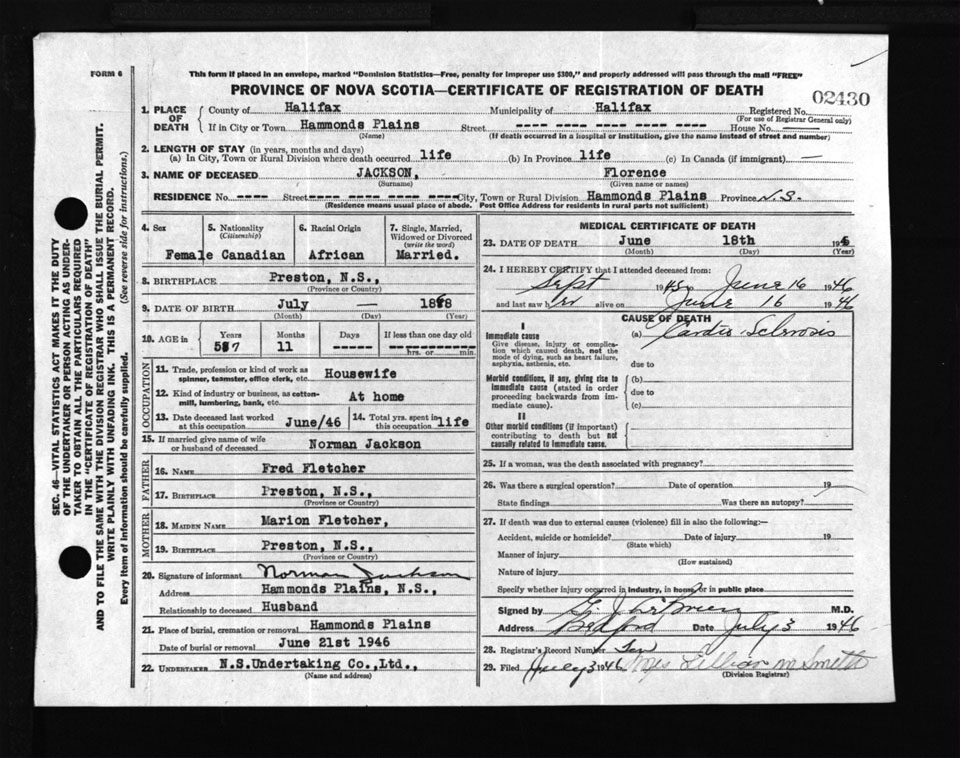 FORM 6
This form if placed in an envelope, marked "Dominion Statistics—Free, penalty for improper use $300," and properly addressed will pass through the mail "FREE"
PROVINCE OF NOVA SCOTIA—CERTIFICATE OF REGISTRATION OF DEATH
02430
1. PLACE OF DEATH { County of Halifax Municipality of Halifax Registered No.
(For use of Registrar General only)
If in City or Town Hammonds Plains Street ---- ---- ---- ---- ---- House No.
(Name) (If death occurred in a hospital or institution, give the name instead of street and number)
2. LENGTH OF STAY (in years, months and days)
(a) In City, Town or Rural Division where death occurred life (b) In Province life (c) In Canada (if immigrant) —
3. NAME OF DECEASED JACKSON, Florence
(Surname) (Given name or names)
RESIDENCE No. ---- Street ---- ---- ---- ---- City, Town or Rural Division Hammonds Plains Province N.S.
(Residence means usual place of abode. Post Office Address for residents in rural parts not sufficient)
4. Sex 5. Nationality (Citizenship) 6. Racial Origin 7. Single, Married, Widowed or Divorced (write the word)
Female Canadian African Married.
8. BIRTHPLACE Preston, N.S.,
(Province or Country)
9. DATE OF BIRTH July — 1888
(Month) (Day) (Year)
10. AGE in Years Months Days If less than one day old
57 11 ----- hrs. or min.
OCCUPATION
11. Trade, profession or kind of work as spinner, teamster, office clerk, etc. Housewife
12. Kind of industry or business, as cotton-mill, lumbering, bank, etc. At home
13. Date deceased last worked at this occupation June/46 14. Total yrs. spent in this occupation life
15. If married give name of wife or husband of deceased Norman Jackson
FATHER
16. NAME Fred Fletcher
17. BIRTHPLACE Preston, N.S.,
(Province or Country)
MOTHER
18. MAIDEN NAME Marion Fletcher,
19. BIRTHPLACE Preston, N.S.,
(Province or Country)
20. Signature of informant Norman Jackson
Address Hammonds Plains, N.S.,
Relationship to deceased Husband
21. Place of burial, cremation or removal Hammonds Plains
Date of burial or removal June 21st 1946
22. UNDERTAKER N.S.Undertaking Co.,Ltd.,
(Name and address)
MEDICAL CERTIFICATE OF DEATH
23. DATE OF DEATH June 18th 1946
(Month) (Day) (Year)
24. I HEREBY CERTIFY that I attended deceased from:
Sept 1945 to June 16 1946
and last saw her alive on June 16 1946
CAUSE OF DEATH
I
Immediate cause (a) Cardio Sclerosis
Give disease, injury or complication which caused death, not the mode of dying, such as heart failure, asphyxia, asthenia, etc.
due to
Morbid conditions, if any, giving rise to immediate cause (stated in order proceeding backwards from immediate cause).
(b)
due to
(c)
II
Other morbid conditions (if important) contributing to death but not causally related to immediate cause.
25. If a woman, was the death associated with pregnancy?
26. Was there a surgical operation? Date of operation 19
State findings Was there an autopsy?
27. If death was due to external causes (violence) fill in also the following:—
Accident, suicide or homicide? Date of injury 19
(State which)
Manner of injury
(How sustained)
Nature of injury
Specify whether injury occurred in industry, in home, or in public place
Signed by M.D.
Address Bedford Date July 3 1946
28. Registrar's Record Number Ten
29. Filed July 3 1946 Mrs Lillian M Smith
(Division Registrar)
SEC. 46—VITAL STATISTICS ACT MAKES IT THE DUTY
OF THE UNDERTAKER OR PERSON ACTING AS UNDER-
TAKER TO OBTAIN ALL THE PARTICULARS REQUIRED
IN THE "CERTIFICATE OF REGISTRATION OF DEATH"
AND TO FILE THE SAME WITH THE DIVISION REGISTRAR WHO SHALL ISSUE THE BURIAL PERMIT.
WRITE PLAINLY WITH UNFADING INK. THIS IS A PERMANENT RECORD.
Every item of information should be carefully supplied. (See reverse side for instructions.)